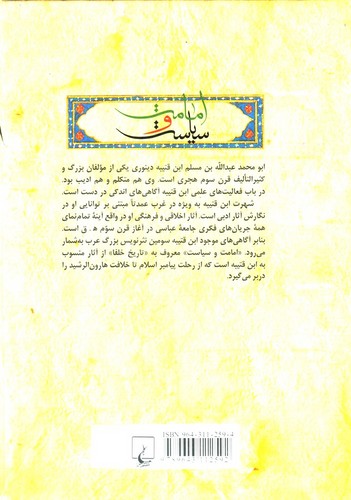 امامت و سیاست
ابو محمد عبدالله بن مسلم ابن قتیبه دینوری یکی از مؤلفان بزرگ و
کثیرالتألیف قرن سوم هجری است. وی هم متکلم و هم ادیب بود.
در باب فعالیت‌های علمی ابن قتیبه آگاهی‌های اندکی در دست است.
شهرت ابن قتیبه به ویژه در غرب عمدتاً مبتنی بر توانایی او در
نگارش آثار ادبی است. آثار اخلاقی و فرهنگی او در واقع آینهٔ تمام‌نمای
همهٔ جریان‌های فکری جامعهٔ عباسی در آغاز قرن سوّم ه. ق است.
بنابر آگاهی‌های موجود ابن قتیبه سومین نثرنویس بزرگ عرب به‌شمار
می‌رود. «امامت و سیاست» معروف به «تاریخ خلفا» از آثار منسوب
به ابن قتیبه است که از رحلت پیامبر اسلام تا خلافت هارون‌الرشید را
دربر می‌گیرد.
ISBN 964-311-259-4
9 789643 112592